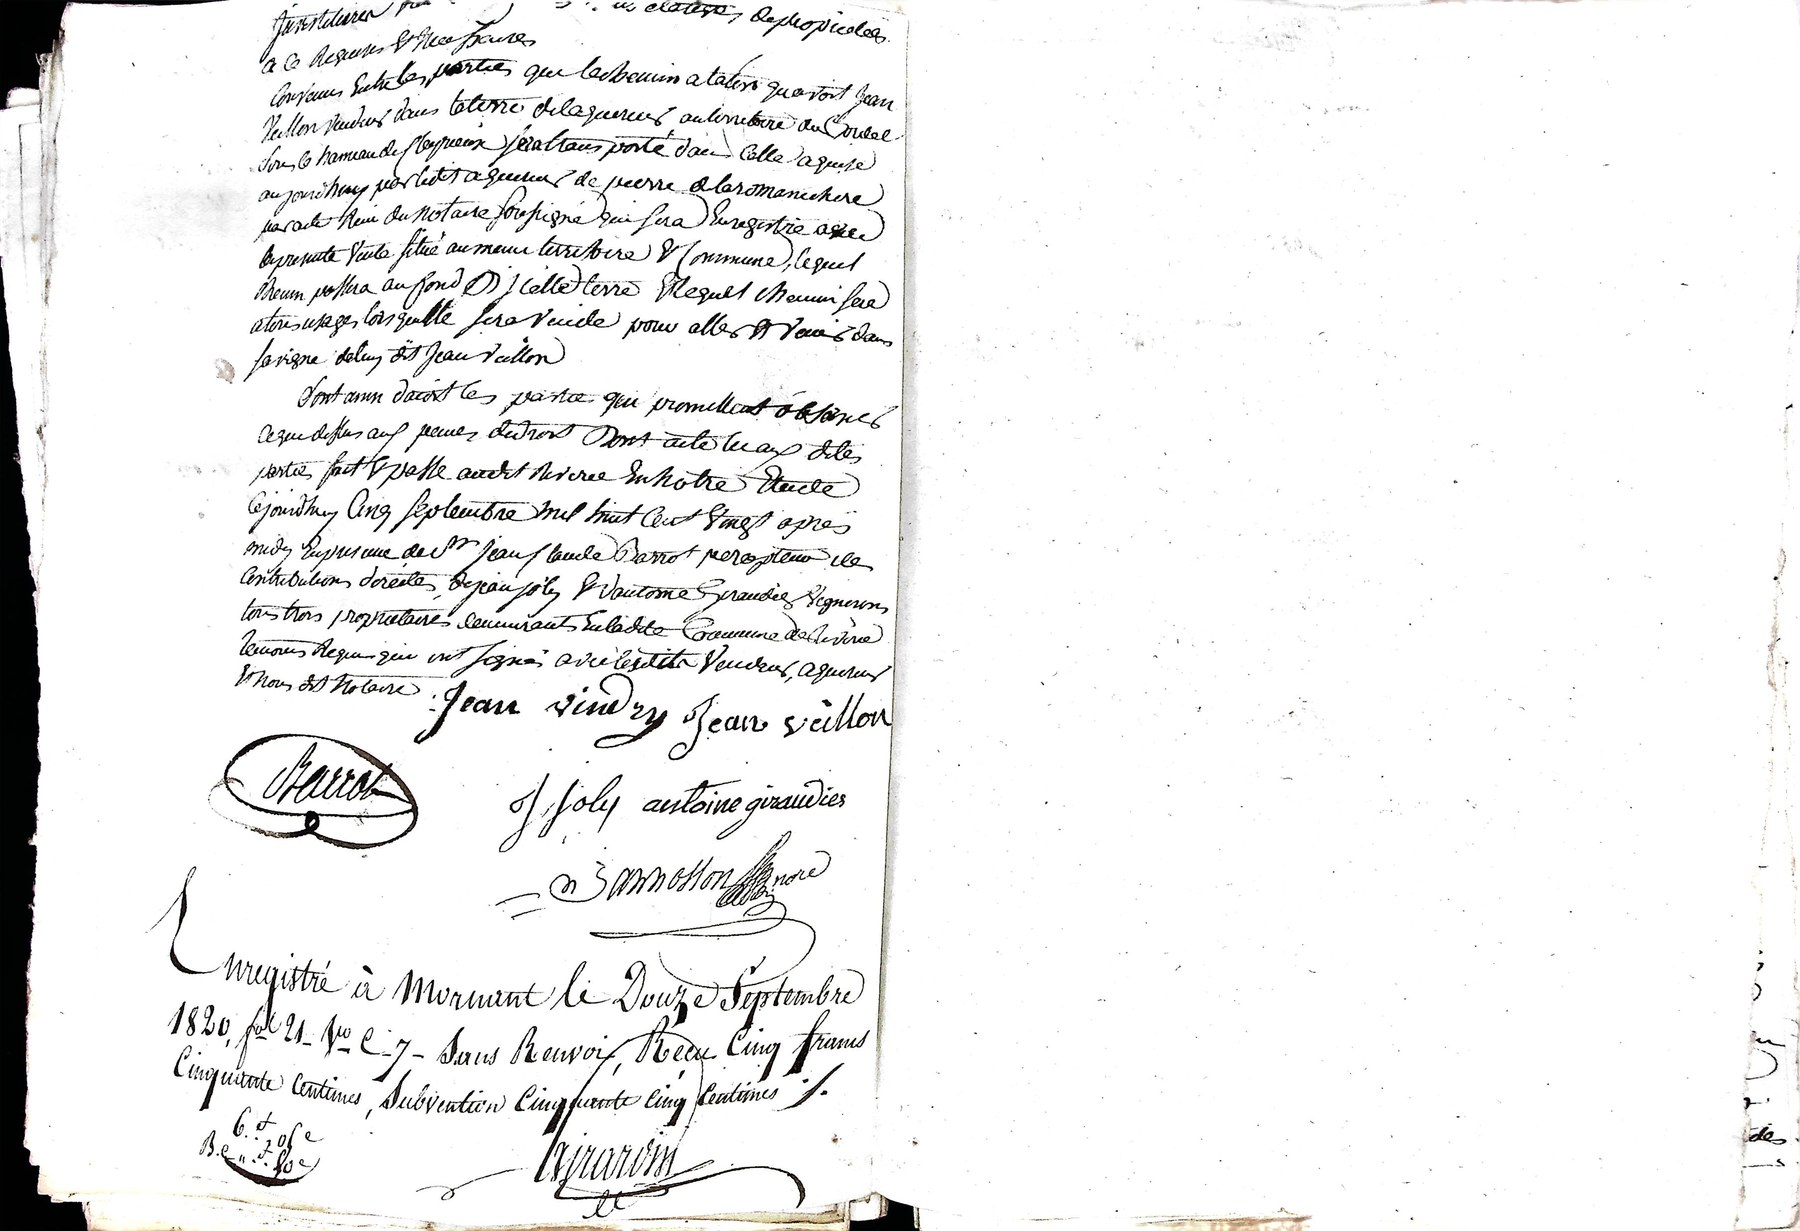 de propriétés
a ce Requises & Necessaires
Convenus Entre les parties que le chemin a talon qu'avoit Jean
Veillon vendeur dans la terre de laquereur au territoire du Coudel
sous le hameau de sera transporté dans Celle aquise
aujourdhuy par ledit aquereur de pierre de laromanichere
par acte Recu du Notaire soussigné qui sera Enregistré avec
la presente Vente situé au meme territoire & Commune, lequel
chemin passera au fond D'icelle terre & lequel chemin sera
a tous usages lors quelle sera Vuide pour aller & venir dans
la vigne de luy dit Jean Veillon
Sont ainsi d'acord les parties qui promettent observer
ce que dessus aux peines du droit Dont acte lu aux dites
parties fait & passé audit Riverie En Notre Etude
Cejourdhuy Cinq Septembre mil huit Cent Vingt après
midy En presence de Sr Jean Claude Barrot percepteur des
Contributions directes, de Jean Joly & d'antoine Giraudier Vignerons
tous trois proprietaires demeurants En ladite Commune de Riverie
temoins Requis qui ont signés avec lesdits Vendeur, aquereur
& Nous dit Notaire
Jean vindry Jean veillon
Barrot
J Joly antoine giraudier
nore
Enregistré à Mornant le Douze Septembre
1820, fol 21 Vo C 7 Sans Renvoi, Reçu Cinq francs
Cinquante Centimes, Subvention Cinquante Cinq Centimes
6. f 05 c
B.e " f 50 c
Girardin
des